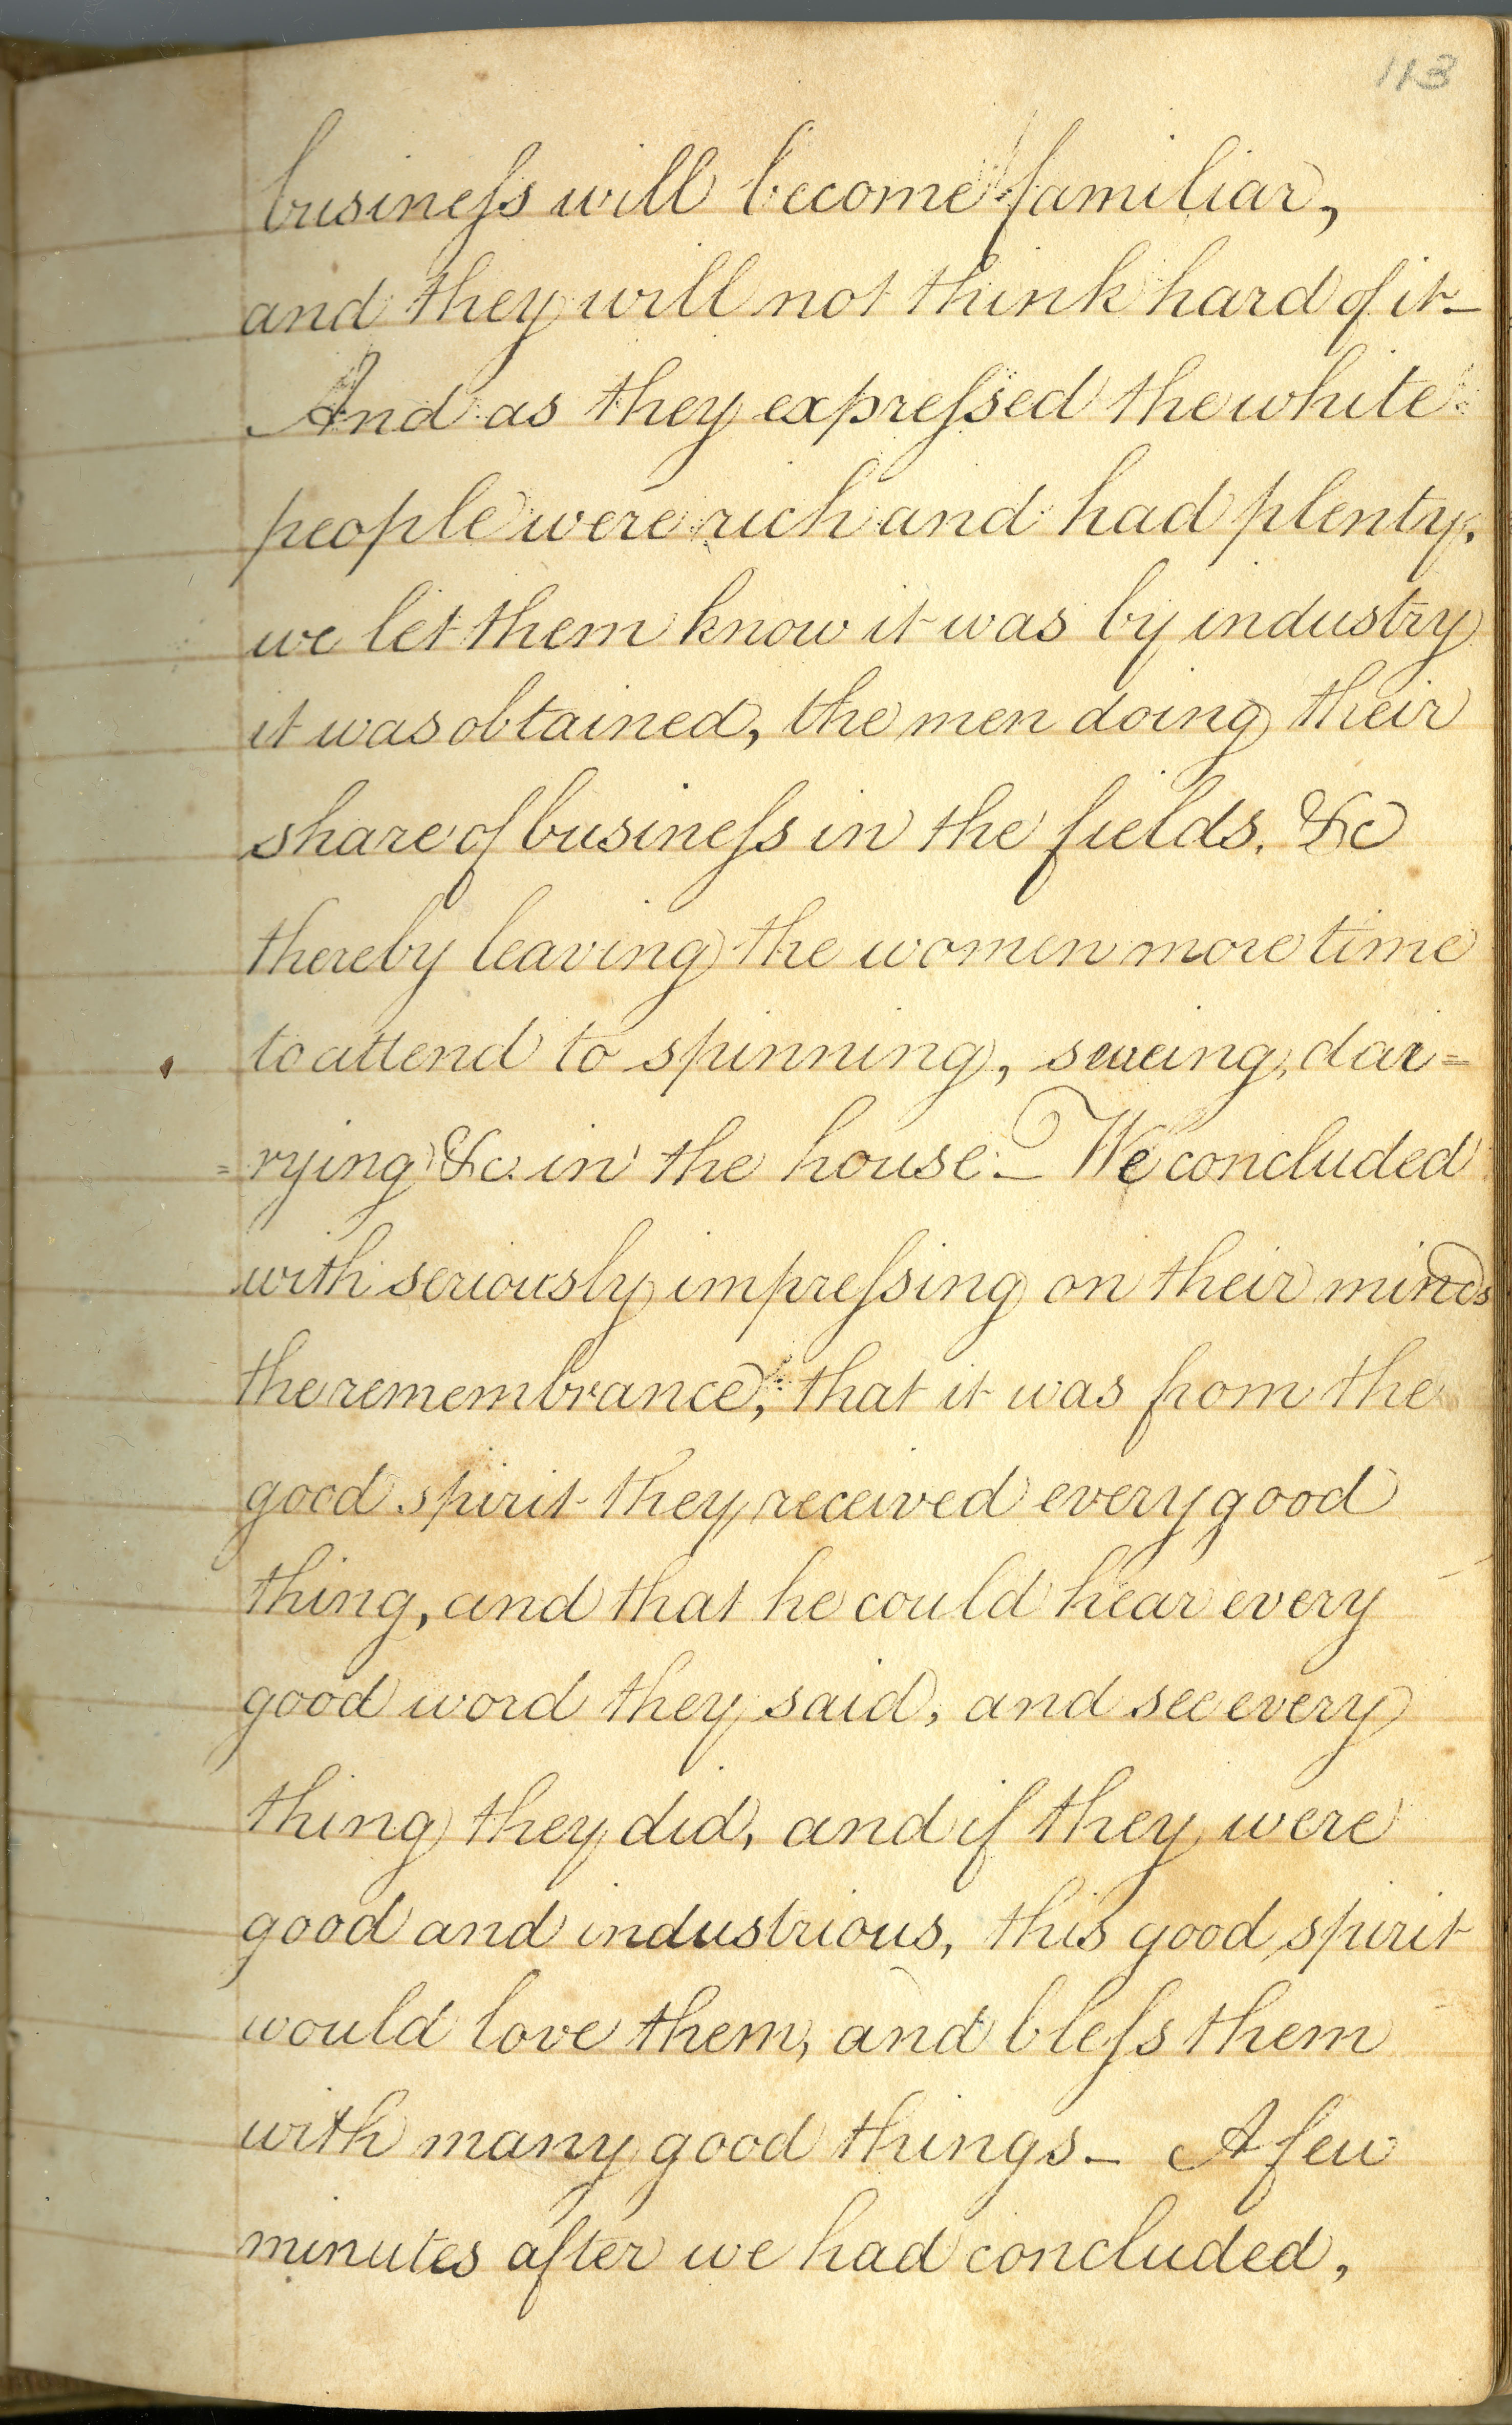 113
busineſs will become familiar,
and they will not think hard of it_
And as they expreſsed the white
people were rich and had plenty,
we let them know it was by industry
it was obtained, the men doing their
share of busineſs in the fields. &c
thereby leaving the women more time
to attend to spinning, sewing, dai=
=rying &c. in the house._ We concluded
with seriously impreſsing on their minds
the remembrance, that it was from the
good spirit they received every good
thing, and that he could hear every
good word they said, and see every
thing they did, and if they were
good and industrious, this good spirit
would love them, and bleſs them
with many good things_ A few
minutes after we had concluded,